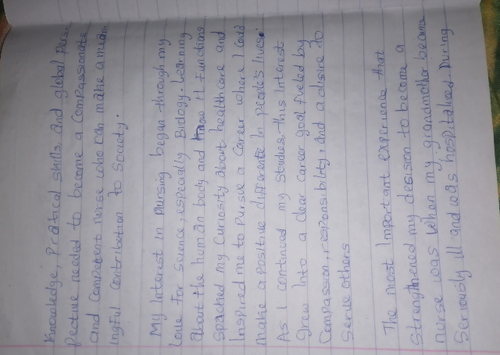 Knowledge, pratical skills, and global Pers-
pective needed to become a compassionate
and Competent nurse who can make a mean-
ingful contribution to society.
My interest in nursing began through my
Love for science, especially Biology. Learning
about the human body and how it functions
sparked my curiosity about healthcare and
inspired me to pursue a career where I could
make a positive difference in people's lives.
As I continued my studies, this interest
grew into a clear career goal fueled by
Compassion, responsibility, and a desire to
serve others
The most important experience that
strengthened my decision to become a
nurse was when my grandmother became
seriously ill and was hospitalized. During